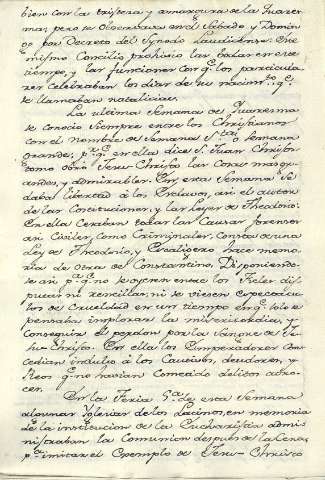 bien con la tristeza y amargura de la Quares
ma; pero se observaba en el Sabado, y Domin
go por Decreto del Synodo Laudicense. Este
mismo Concilio prohibio las bodas en este
tiempo, y las funciones con q.e los particula
res celebraban los dias de su nacim.to q.e
se llamaban natalicias.
La ultima Semana de Quaresma
se conocio siempre entre los Christianos
con el nombre de Semana S.ta o Semana
grande, p.r q.e en ella dice S. Juan Chrisos.
como obro Jesu-Christo las cosas mas gr
andes, y admirables. En esta Semana Se
daba libertad à los Esclavos, asi el autor
de las Constituciones, y las Leyes de Theodosio.
En ella cesaban todas las Causas forenses
asi Civiles, como Criminales. Consta de una
Ley de Theodosio, y Escaligero hace memo
ria de otra de Constantino. Disponiendo
se asi p.a q.e no se oyesen entre los Fieles dis
putas ni rencillas, ni se viesen espectacu
los de crueldad en un tiempo en q.e solo se
pensaba implorar la misericordia, y
conseguir el perdon por la Sangre de Je
su-Christo. En ella los Emperadores con
cedian indulto à los Cautivos, deudores, y
Reos q.e no havian cometido delitos atro
ces.
En la Feria 5.a de esta Semana
algunas Iglesias de los Latinos, en memoria
de la institucion de la Eucharistia admi
nistraban la Comunion despues de la Cena,
p.a imitar el Exemplo de Jesu-Christo